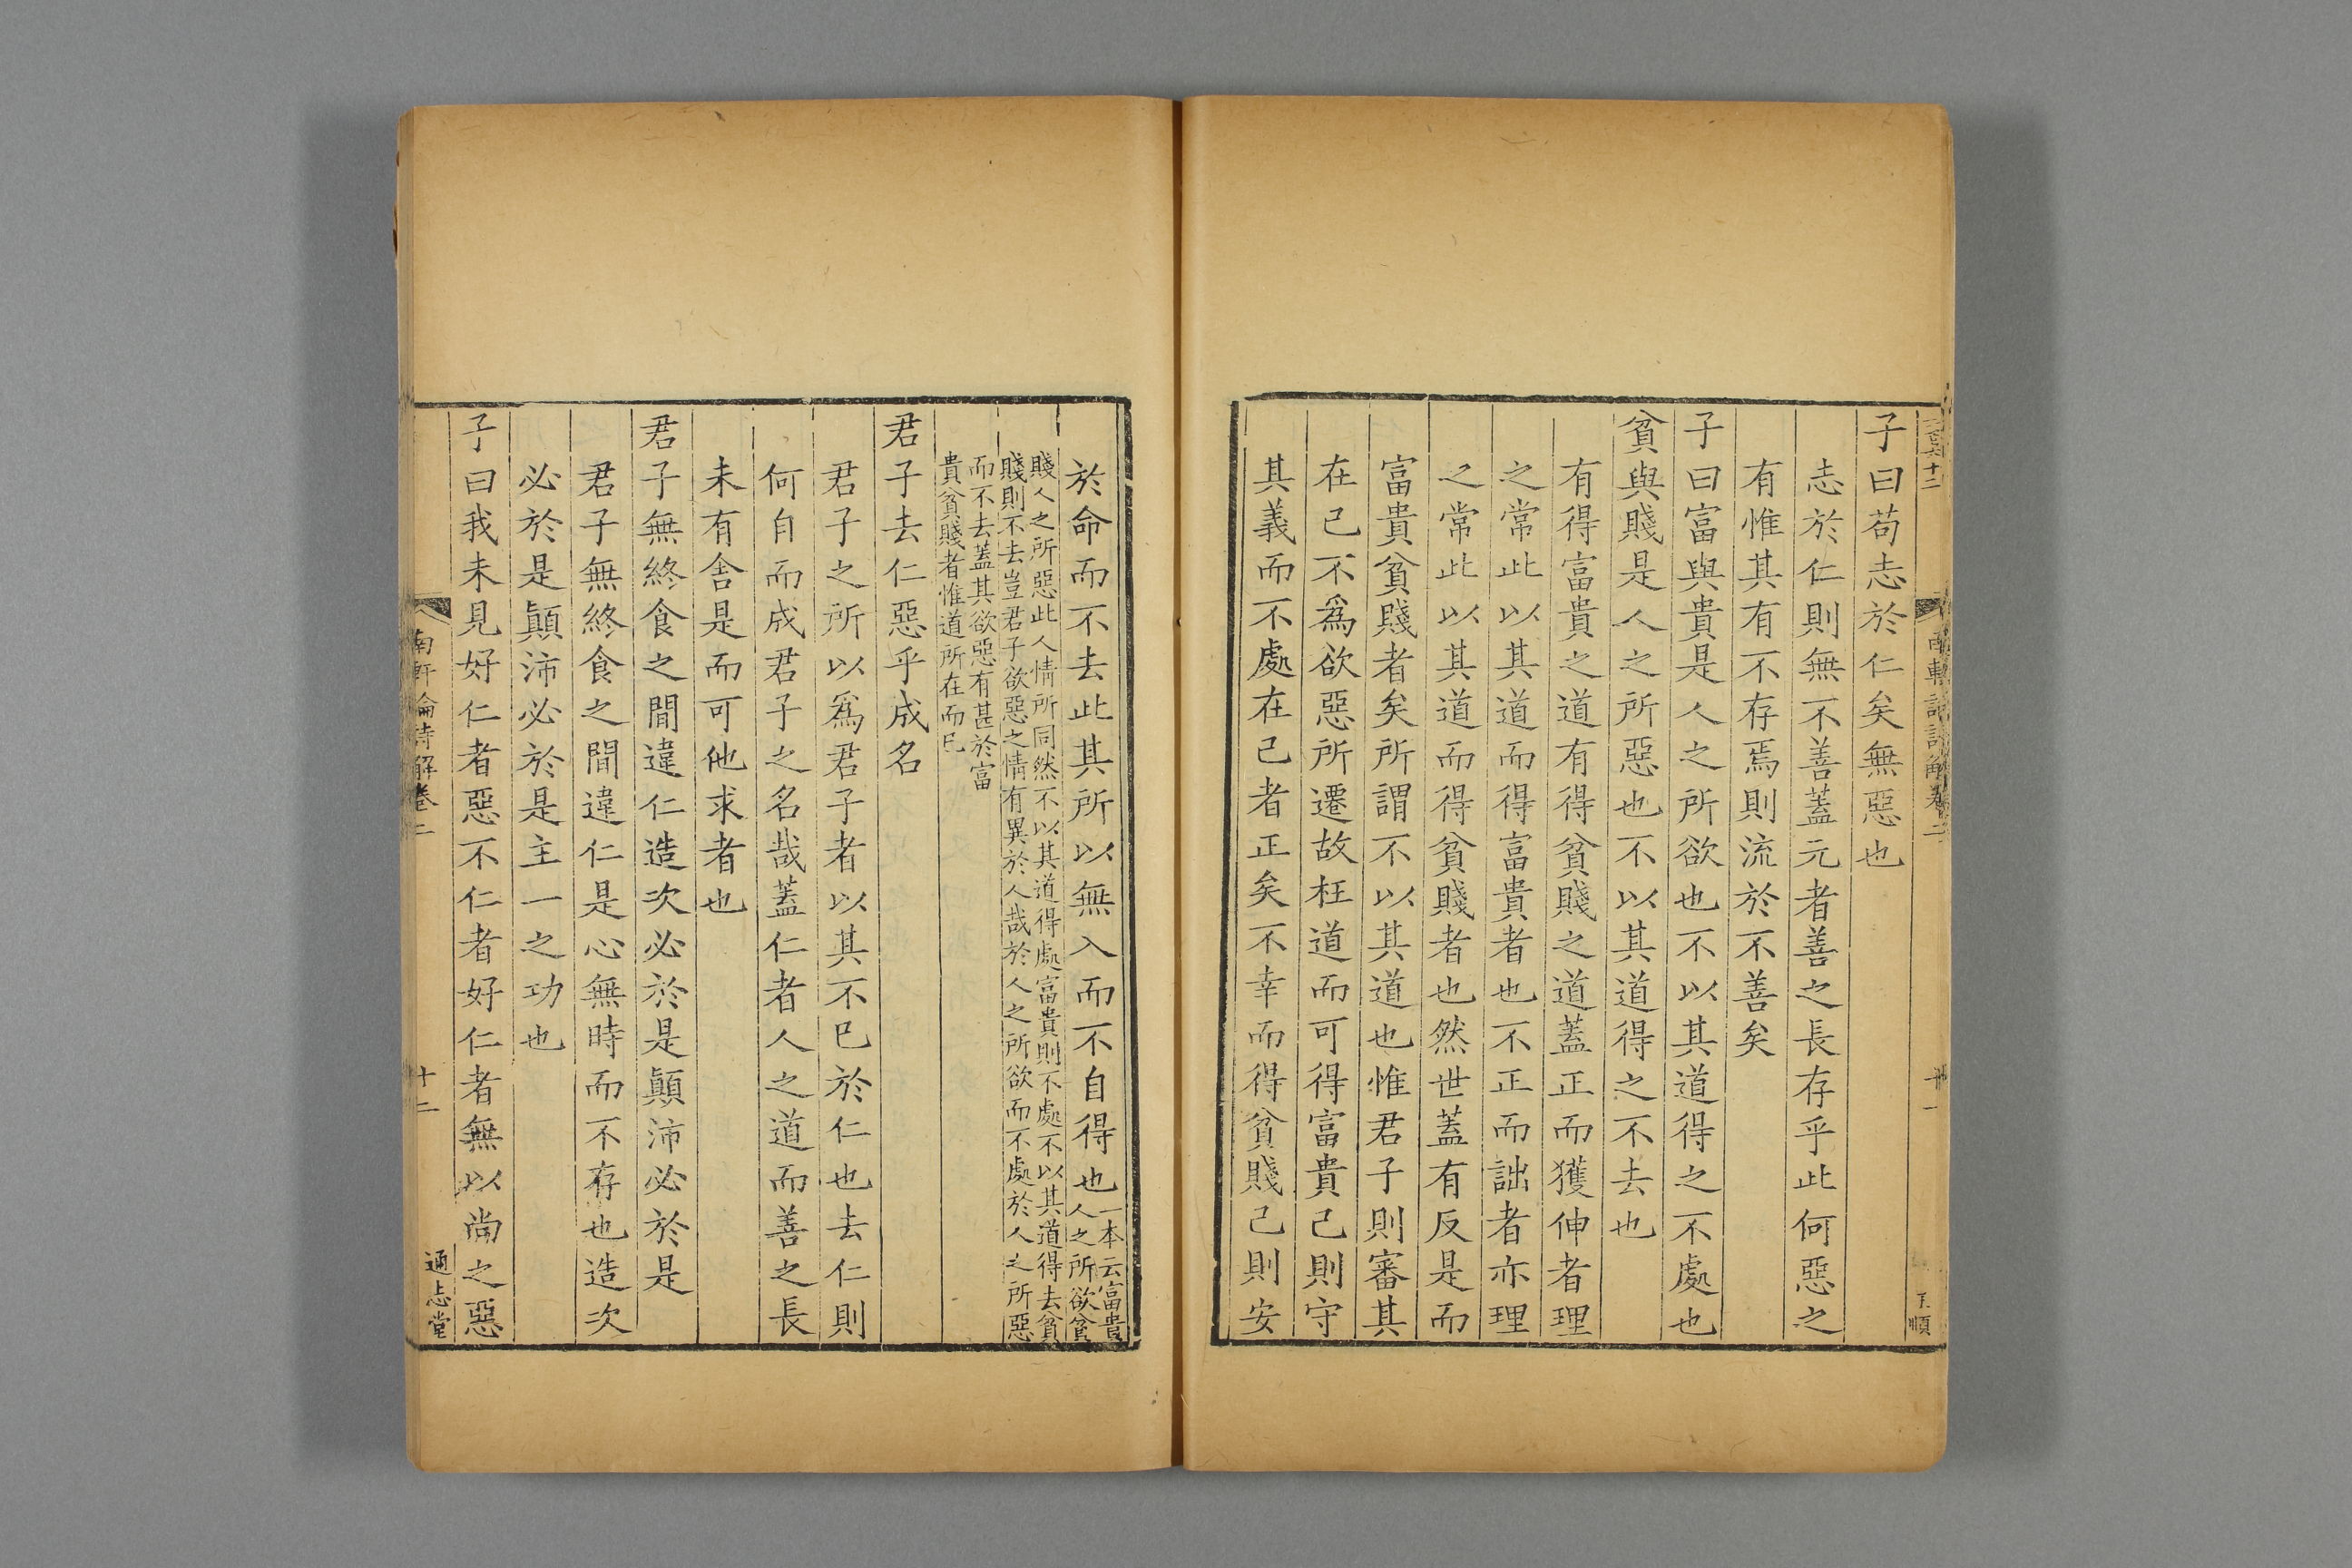 子曰苟志於仁矣無惡也
志於仁則無不善蓋元者善之長存乎此何惡之
有惟其有不存焉則流於不善矣
子曰富與貴是人之所欲也不以其道得之不處也
貧與賤是人之所惡也不以其道得之不去也
有得富貴之道有得貧賤之道蓋正而獲伸者理
之常此以其道而得富貴者也不正而詘者亦理
之常此以其道而得貧賤者也然世蓋有反是而
富貴貧賤者矣所謂不以其道也惟君子則審其
在己不爲欲惡所遷故枉道而可得富貴己則守
其義而不處在己者正矣不幸而得貧賤己則安
於命而不去此其所以無入而不自得也
一本云富貴
人之所欲貧
賤人之所惡此人情所同然不以其道得處富貴則不處不以其道得去貧
賤則不去豈君子欲惡之情有異於人哉於人之所欲而不處於人之所惡
而不去蓋其欲惡有甚於富
貴貧賤者惟道所在而已
君子去仁惡乎成名
君子之所以爲君子者以其不已於仁也去仁則
何自而成君子之名哉蓋仁者人之道而善之長
未有舍是而可他求者也
君子無終食之間違仁造次必於是顚沛必於是
君子無終食之間違仁是心無時而不存也造次
必於是顚沛必於是主一之功也
子曰我未見好仁者惡不仁者好仁者無以尚之惡
南軒論語解卷二
十二
通志堂